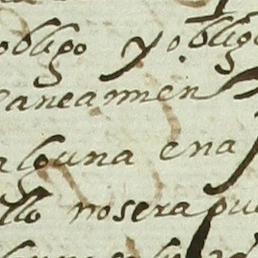 obligo y oblig
saneamien
alguna ena
llo nosera pue